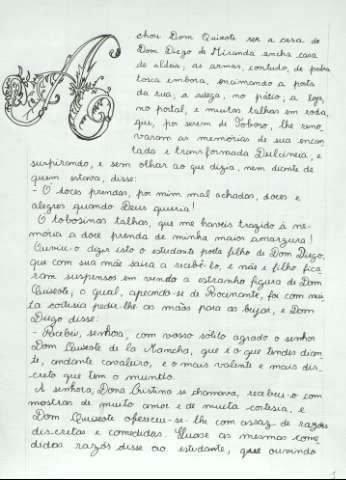 chou Dom Quixote ser a casa de
Dom Diego de Miranda ancha casa
de aldeia, as armas, contudo, de pedra
tosca embora, encimando a porta
da rua, a adega, no pátio, a loja,
no portal, e muitas talhas em roda,
que, por serem de Toboso, lhe reno_
varam as memórias de sua encan_
tada e transformada Dulcineia, e
suspirando, e sem olhar ao que dizia, nem diante de
quem estava, disse:
- Ó doces prendas, por mim mal achadas, doces e
alegres quando Deus queria!
Ó tobosinas talhas, que me haveis trazido à me-
mória a doce prenda de minha maior amargura!
Ouviu-o dizer isto o estudante poeta filho de Dom Diego,
que com sua mãe saíra a recebê-lo, e mãe e filho fica_
ram suspensos em vendo a estranha figura de Dom
Quixote, o qual, apeando-se de Rocinante, foi com mui_
ta cortesia pedir-lhe as mãos para as beijar, e Dom
Diego disse:
- Recebei, senhora, com vosso sólito agrado o senhor
Dom Quixote de la Mancha, que é o que tendes dian_
te, andante cavaleiro, e o mais valente e mais dis_
creto que tem o mundo.
A senhora, Dona Cristina se chamava, recebeu-o com
mostras de muito amor e de muita cortesia, e
Dom Quixote ofereceu-se-lhe com assaz de razões
discretas e comedidas. Quase as mesmas come_
didas razões disse ao estudante, que ouvindo
1